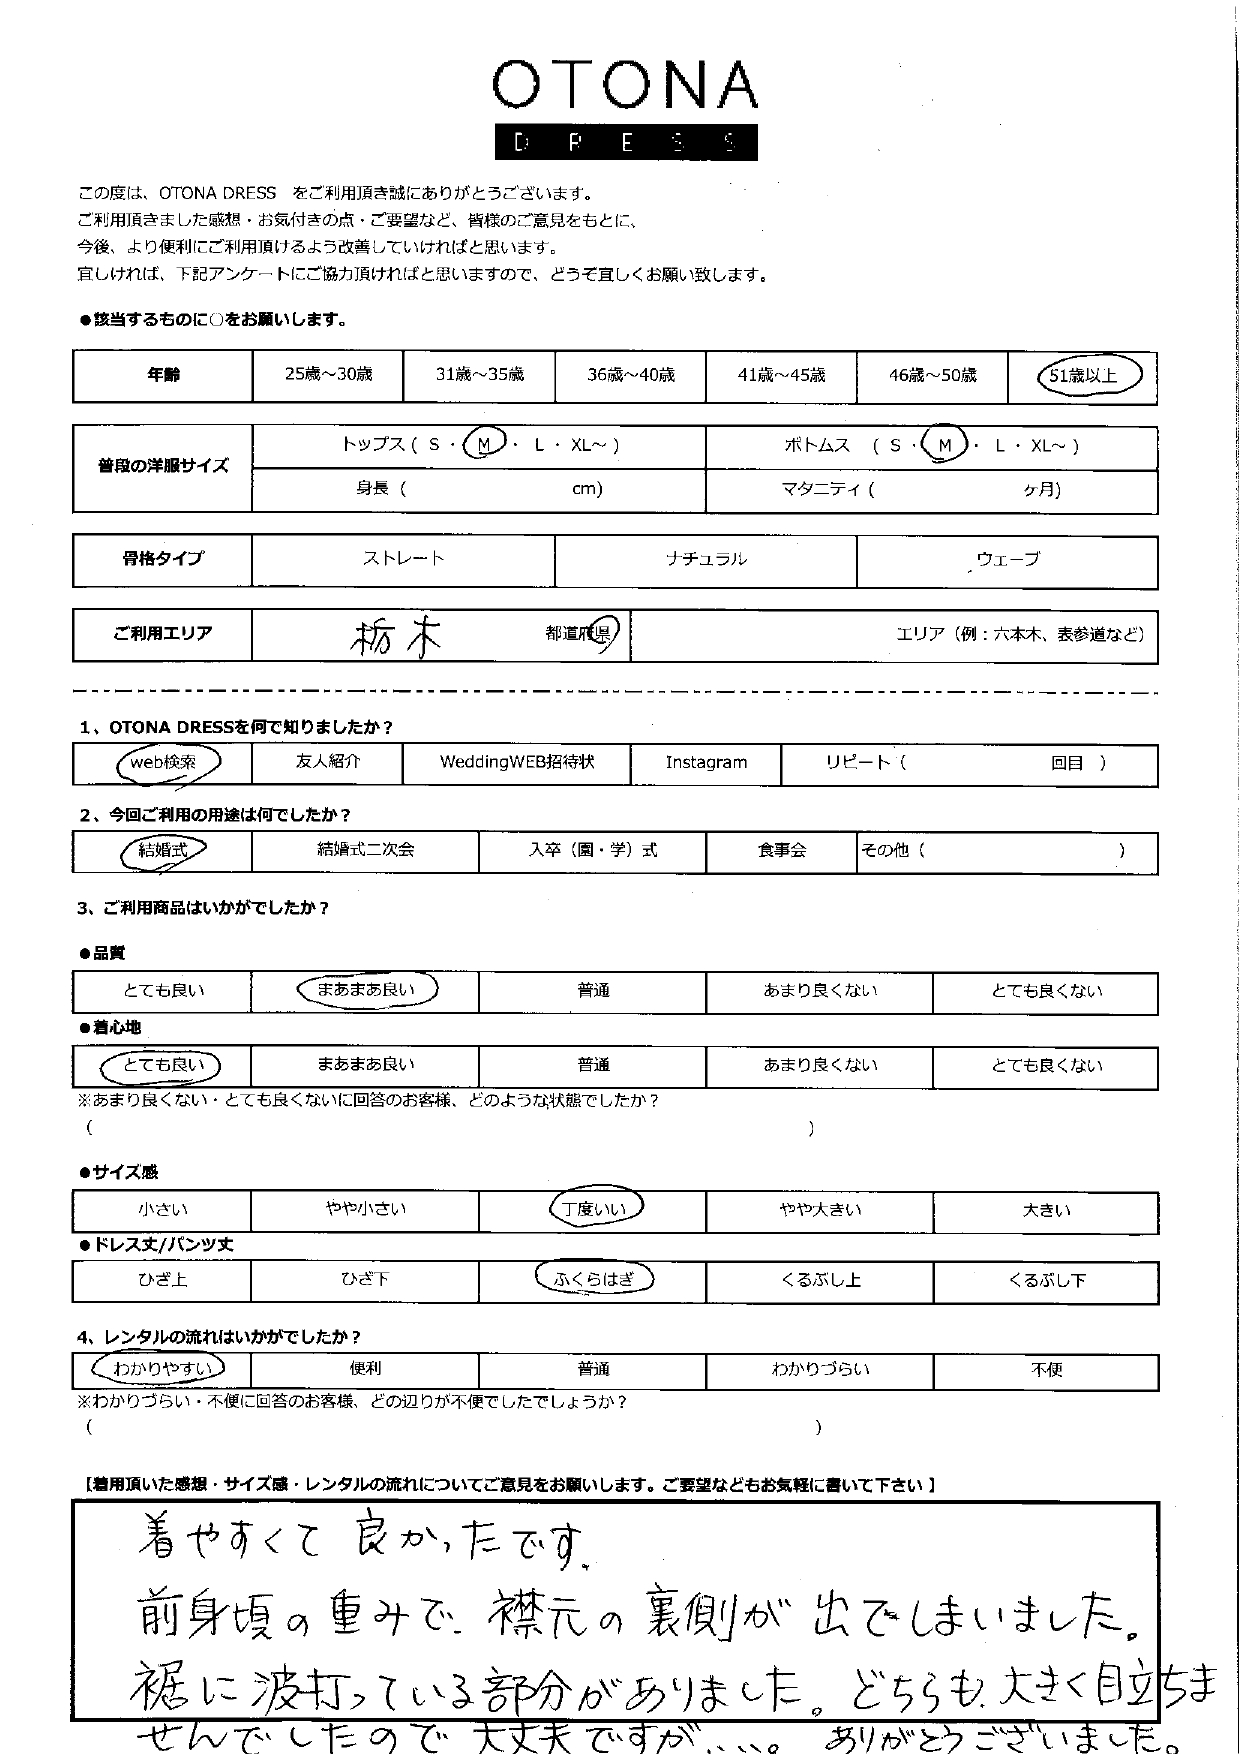 OTONA
DRESS
この度は、OTONA DRESS　をご利用頂き誠にありがとうございます。
ご利用頂きました感想・お気付きの点・ご要望など、皆様のご意見をもとに、
今後、より便利にご利用頂けるよう改善していければと思います。
宜しければ、下記アンケートにご協力頂ければと思いますので、どうぞ宜しくお願い致します。
●該当するものに○をお願いします。
年齢 25歳～30歳 31歳～35歳 36歳～40歳 41歳～45歳 46歳～50歳 51歳以上
普段の洋服サイズ トップス（ S ・ M ・ L ・ XL～ ） ボトムス （ S ・ M ・ L ・ XL～ ）
身長（ cm） マタニティ（ ヶ月）
骨格タイプ ストレート ナチュラル ウェーブ
ご利用エリア 栃木 都道府県 エリア（例：六本木、表参道など）
1、OTONA DRESSを何で知りましたか？
web検索 友人紹介 WeddingWEB招待状 Instagram リピート（ 回目 ）
2、今回ご利用の用途は何でしたか？
結婚式 結婚式二次会 入卒（園・学）式 食事会 その他（ ）
3、ご利用商品はいかがでしたか？
●品質
とても良い まあまあ良い 普通 あまり良くない とても良くない
●着心地
とても良い まあまあ良い 普通 あまり良くない とても良くない
※あまり良くない・とても良くないに回答のお客様、どのような状態でしたか？
（ ）
●サイズ感
小さい やや小さい 丁度いい やや大きい 大きい
●ドレス丈/パンツ丈
ひざ上 ひざ下 ふくらはぎ くるぶし上 くるぶし下
4、レンタルの流れはいかがでしたか？
わかりやすい 便利 普通 わかりづらい 不便
※わかりづらい・不便に回答のお客様、どの辺りが不便でしたでしょうか？
（ ）
【着用頂いた感想・サイズ感・レンタルの流れについてご意見をお願いします。ご要望などもお気軽に書いて下さい】
着やすくて良かったです。
前身頃の重みで、襟元の裏側が出てしまいました。
裾に波打っている部分がありました。どちらも、大きく目立ちま
せんでしたので大丈夫ですが、、、。ありがとうございました。